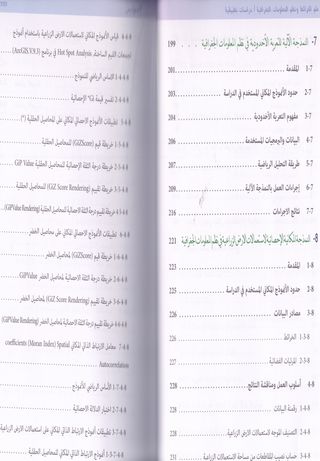 علم الخرائط ونظم المعلومات الجغرافية / دراسات تطبيقية
7- النمذجة الآلية للتعرية الأخدودية في نظم المعلومات الجغرافية 199
1-7 المقدمة 201
2-7 حدود الأنموذج المكاني المستخدم في الدراسة 203
3-7 مفهوم التعرية الأخدودية 204
4-7 البيانات والبرمجيات المستخدمة 206
5-7 طريقة التحليل الرياضية 207
6-7 إجراءات العمل بالنمذجة الآلية 209
7-7 نتائج الاجراءات 216
8- النمذجة المكانية الإحصائية لاستعمالات الارض الزراعية في نظم المعلومات الجغرافية 221
1-8 المقدمة 223
2-8 حدود الأنموذج المكاني المستخدم في الدراسة 225
3-8 مصادر البيانات 226
1-3-8 الخرائط 226
2-3-8 المرئيات الفضائية 227
4-8 أسلوب العمل ومناقشة النتائج 228
1-4-8 رقمنة البيانات 228
2-4-8 التصنيف الموجه لاستعمالات الارض الزراعية 228
3-4-8 حساب نصيب المقاطعات من مساحة الاستعمالات الزراعية 231
4-4-8 قياس الأنموذج المكاني لاستعمالات الارض الزراعية باستخدام أنموذج
تجمعات القيم الساخنة Hot Spot Analysis في برنامج (ArcGIS.V9.3)
1-4-4-8 الاساس الرياضي للنموذج
2-4-4-8 تفسير قيمة Gi* الإحصائية
5-4-8 تطبيقات الأنموذج الإحصائي المكاني على المحاصيل الحقلية (*)
1-5-4-8 خريطة قيم (GIZScore) للمحاصيل الحقلية
2-5-4-8 خريطة درجة الثقة الإحصائية للمحاصيل الحقلية GiP Value
3-5-4-8 خريطة تقييم (GiZ Score Rendering) للمحاصيل الحقلية
4-5-4-8 خريطة تقييم درجة الثقة الإحصائية للمحاصيل الحقلية (GiPValue Rendering)
6-4-8 تطبيقات الأنموذج الإحصائي المكاني على محاصيل الخضر
1-6-4-8 خريطة قيم (GIZScore) لمحاصيل الخضر
2-6-4-8 خريطة درجة الثقة الإحصائية لمحاصيل الخضر GiPValue
3-6-4-8 خريطة تقييم (GiZ Score Rendering) لمحاصيل الخضر
4-6-4-8 خريطة تقييم درجة الثقة الإحصائية لمحاصيل الخضر (GiPValue Rendering)
7-4-8 معامل الارتباط الذاتي المكاني coefficients (Moran Index) Spatial
Autocorrelation
1-7-4-8 الأساس الرياضي للأنموذج
2-7-4-8 اختبار الدلالة الإحصائية
3-7-4-8 تطبيقات أنموذج الارتباط الذاتي المكاني على استعمالات الارض الزراعية
1-3-7-4-8 أنموذج الارتباط الذاتي المكاني للمحاصيل الحقلية